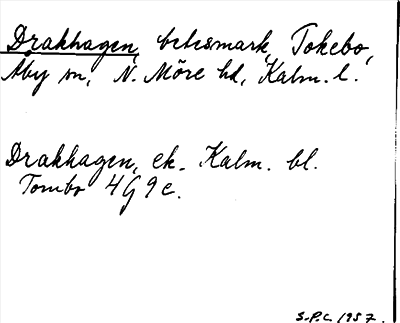 Drakhagen, betesmark, Tokebo,
Åby sn, N. Möre hd, Kalm. l.
Drakhagen, ek. Kalm. bl.
Tombo 4G 9c.
S.P.C. 1957.